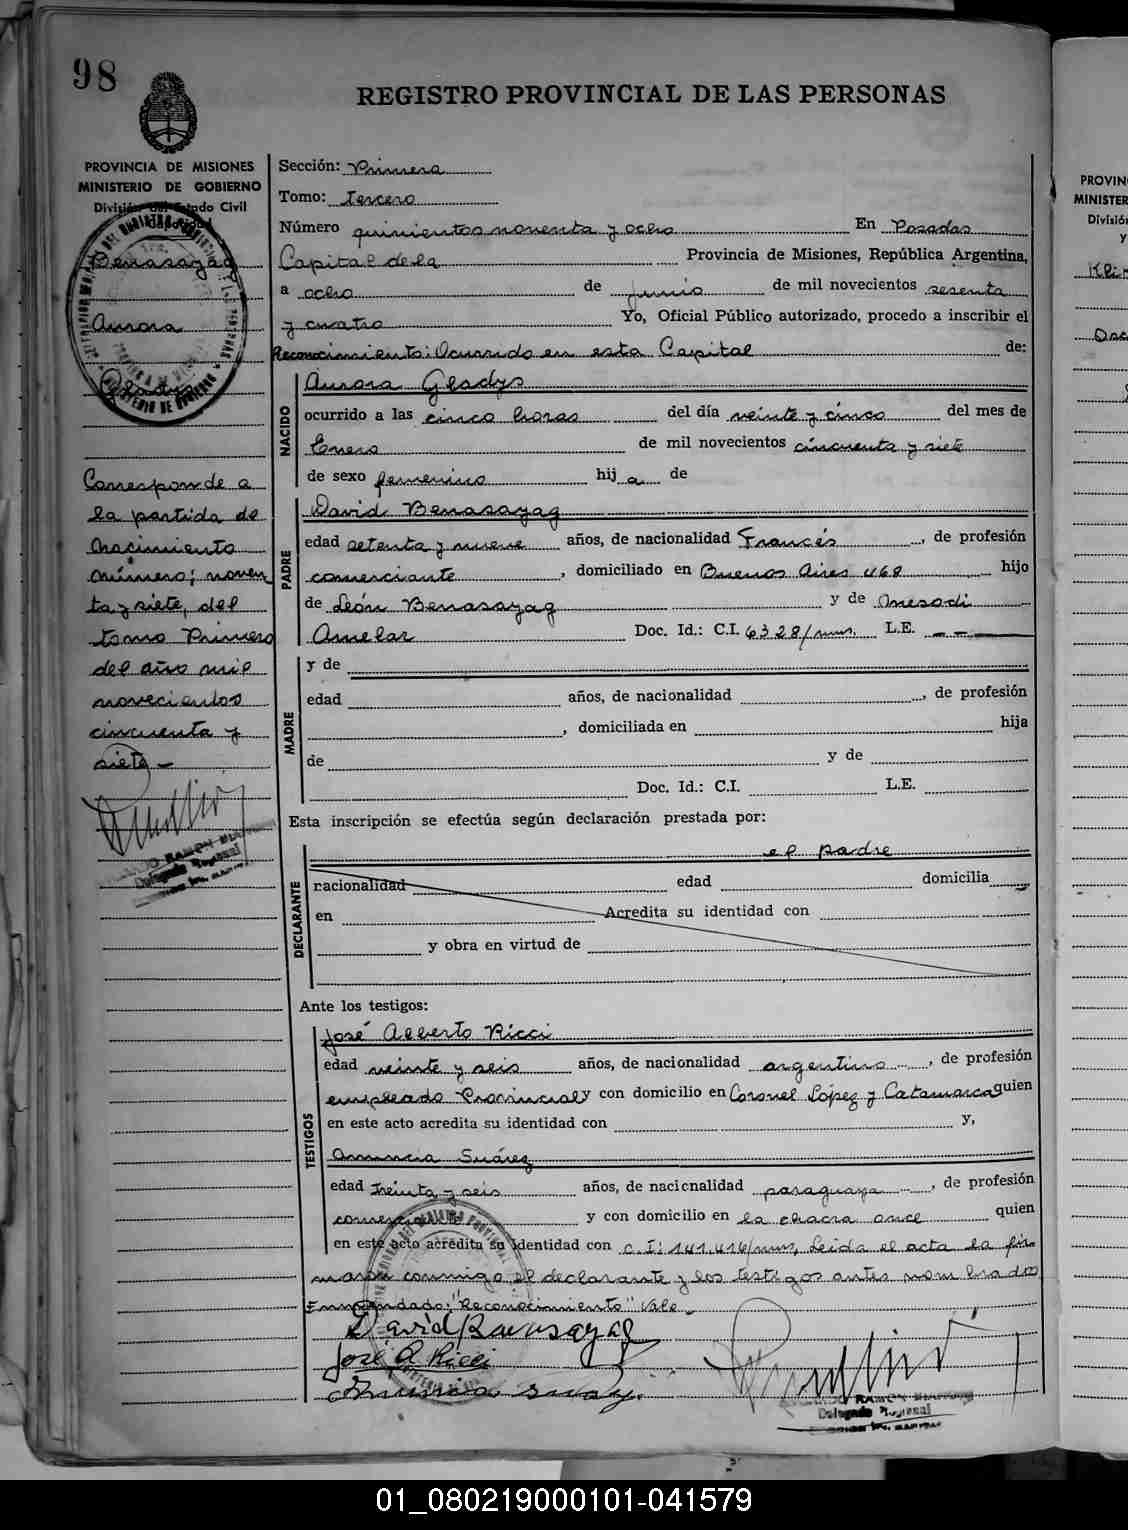 98
REGISTRO PROVINCIAL DE LAS PERSONAS
PROVINCIA DE MISIONES
MINISTERIO DE GOBIERNO
División del Estado Civil
Benasayag
Aurora
Gladys
Corresponde a
la partida de
Nacimiento
número; noven
ta y siete, del
tomo Primero
del año mil
novecientos
cincuenta y
siete -
Delegado Regional
Sección: Primera
Tomo: tercero
Número quinientos noventa y ocho En Posadas
Capital de la Provincia de Misiones, República Argentina,
a ocho de junio de mil novecientos sesenta
y cuatro Yo, Oficial Público autorizado, procedo a inscribir el
Reconocimiento: Ocurrido en esta Capital de:
NACIDO
Aurora Gladys
ocurrido a las cinco horas del día veinte y cinco del mes de
Enero de mil novecientos cincuenta y siete
de sexo femenino hij a de
PADRE
David Benasayag
edad setenta y nueve años, de nacionalidad Francés, de profesión
comerciante, domiciliado en Buenos Aires 468 hijo
de León Benasayag y de Mesodi
Amelar Doc. Id.: C.I. 6328/mns. L.E. - -
MADRE
y de
edad años, de nacionalidad , de profesión
, domiciliada en hija
de y de
Doc. Id.: C.I. L.E.
Esta inscripción se efectúa según declaración prestada por:
DECLARANTE
el padre
nacionalidad edad domicilia
en Acredita su identidad con
y obra en virtud de
Ante los testigos:
TESTIGOS
José Alberto Ricci
edad veinte y seis años, de nacionalidad argentino, de profesión
empleado Provincial y con domicilio en Coronel López y Catamarca quien
en este acto acredita su identidad con y,
Anuncia Suárez
edad treinta y seis años, de nacionalidad paraguaya, de profesión
comerciante y con domicilio en la chacra once quien
en este acto acredita su identidad con C.I: 141.416/mns, Leida el acta la fir
maron conmigo el declarante y los testigos antes nombrados
Enmendado: "Reconocimiento" Vale -
David Benasayag
José A Ricci
Delegado Regional
PROVIN
MINISTER
Divisió
y
01_080219000101-041579